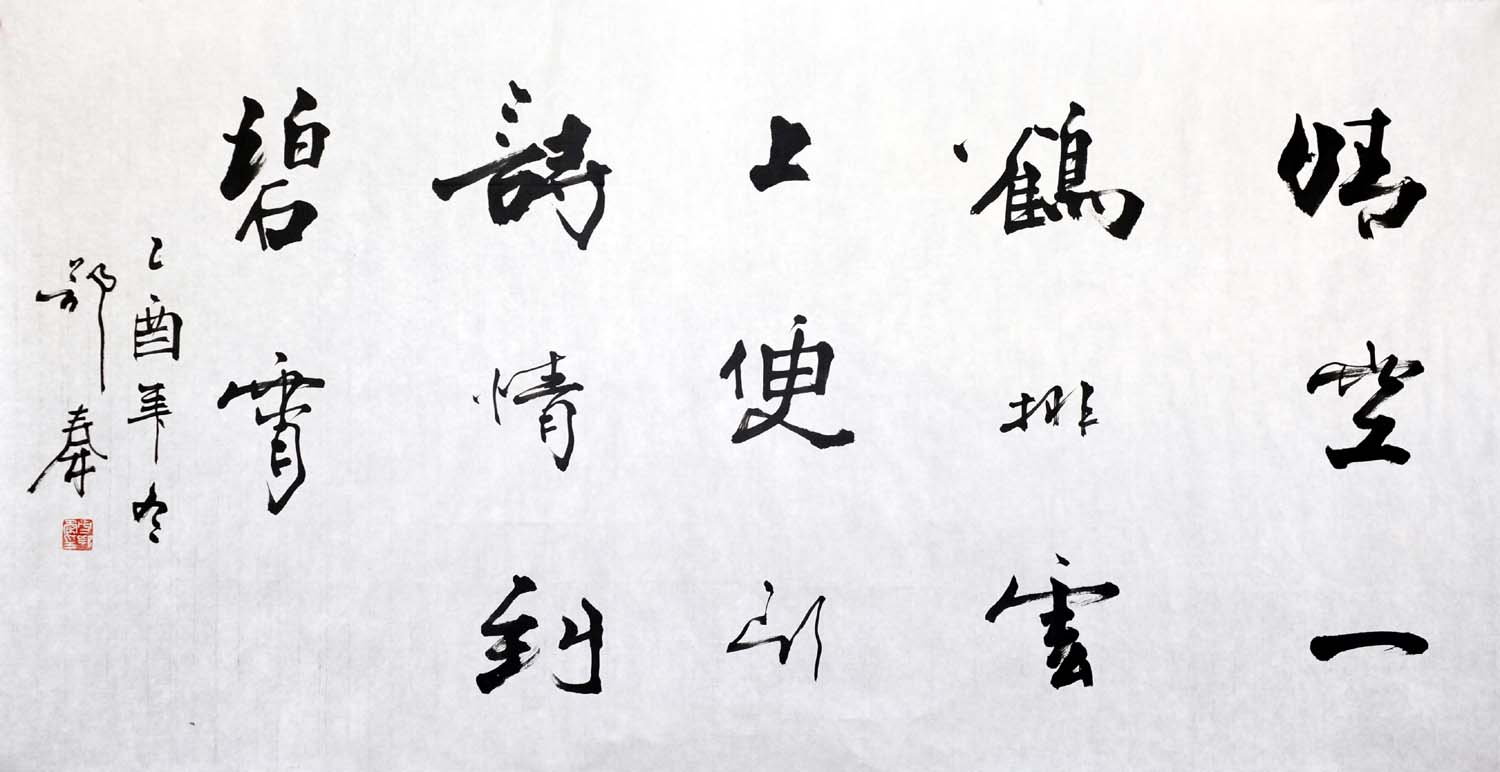 晴空一
鶴排雲
上便引
詩情到
碧霄
乙酉年冬